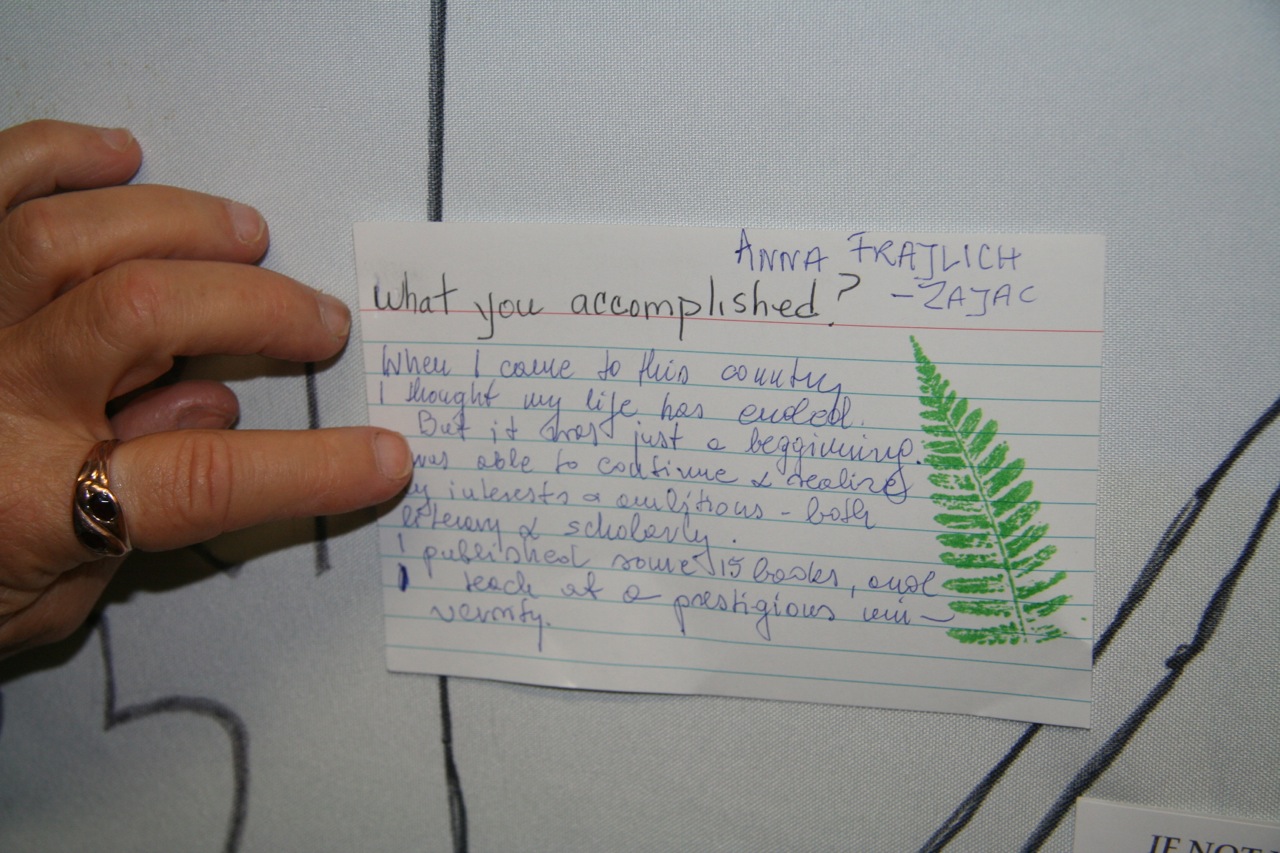 ANNA FRAJLICH
What you accomplished? -ZAJAC
When I came to this country
I thought my life has ended.
But it was just a beggining.
was able to continue & realize
my interests & ambitions - both
literary & scholarly.
I published some 15 books, and
I teach at a prestigious uni-
versity.
IF NOT